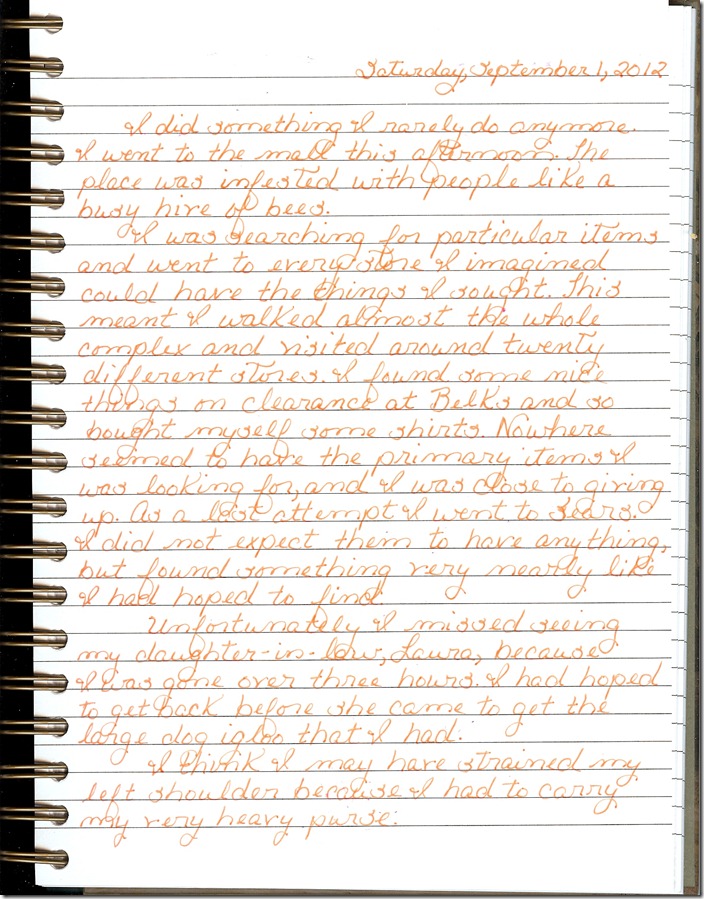 Saturday, September 1, 2012
I did something I rarely do anymore.
I went to the mall this afternoon. The
place was infested with people like a
busy hive of bees.
I was searching for particular items
and went to every store I imagined
could have the things I sought. This
meant I walked almost the whole
complex and visited around twenty
different stores. I found some nice
things on clearance at Belks and so
bought myself some shirts. Nowhere
seemed to have the primary items I
was looking for, and I was close to giving
up. As a last attempt I went to Sears.
I did not expect them to have anything,
but found something very nearly like
I had hoped to find.
Unfortunately I missed seeing
my daughter-in-law, Laura, because
I was gone over three hours. I had hoped
to get back before she came to get the
large dog igloo that I had.
I think I may have strained my
left shoulder because I had to carry
my very heavy purse.